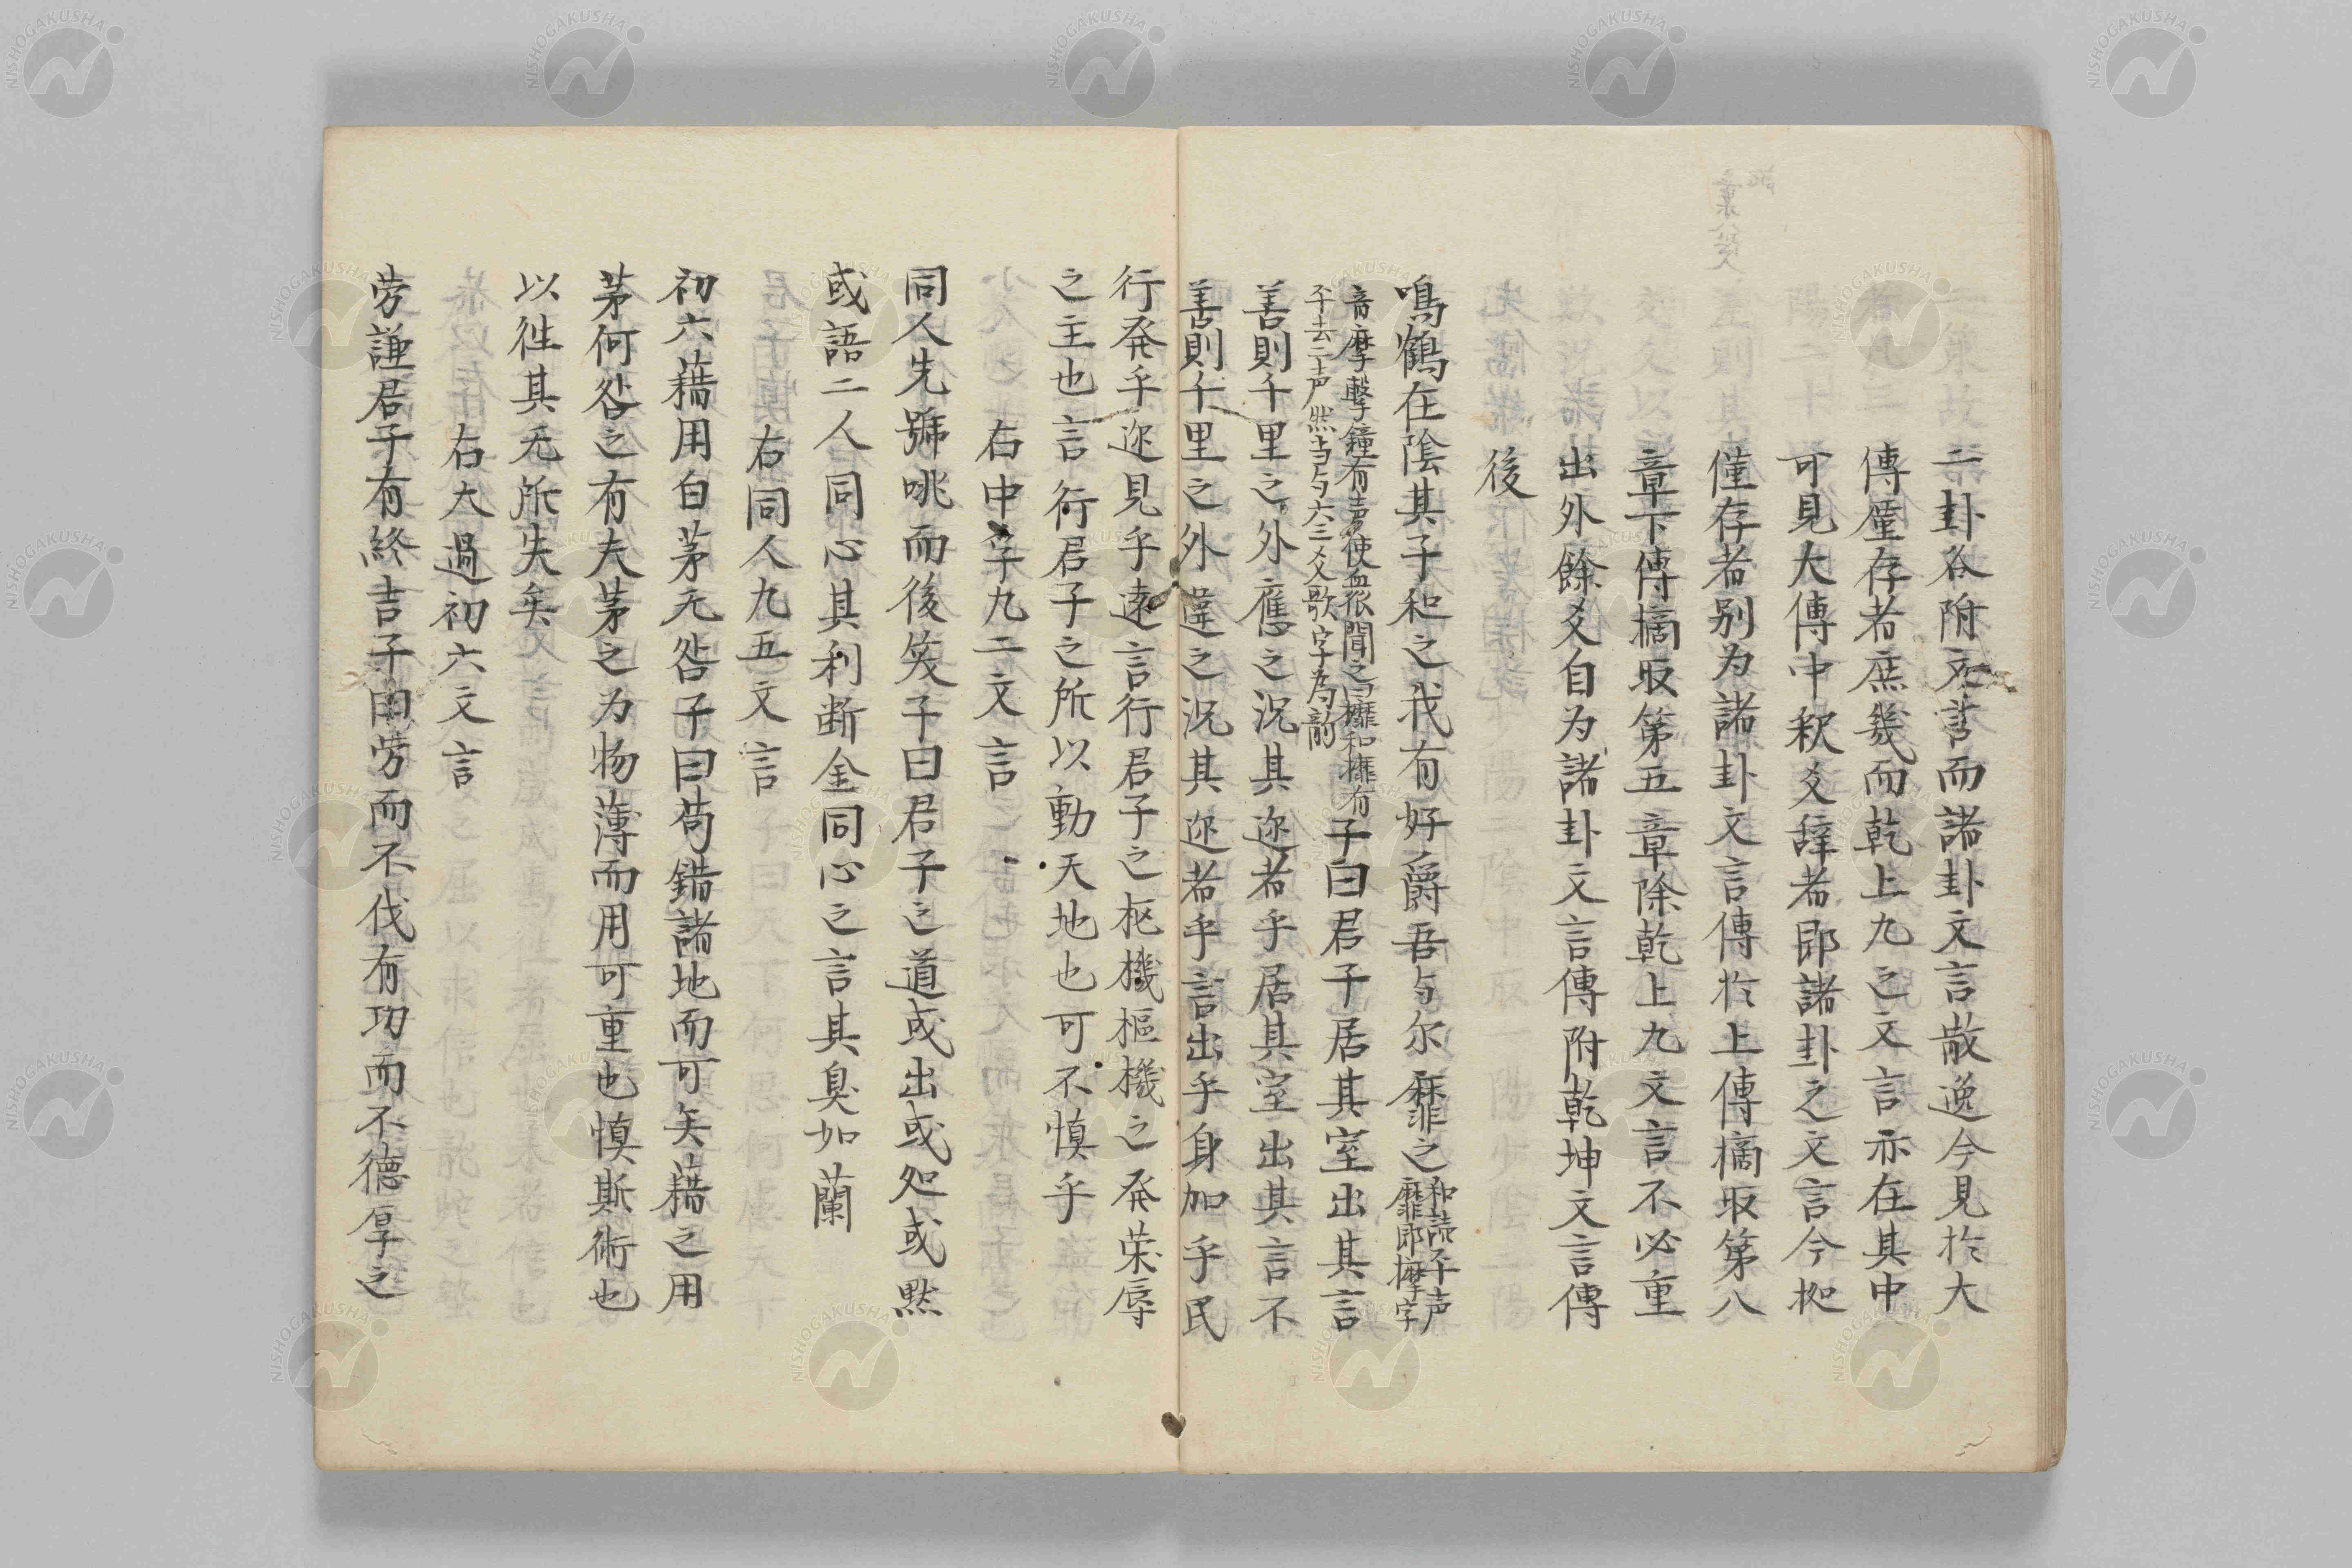 二卦各附文言而諸卦文言散逸今見於大
傳僅存者庶幾而乾上九之文言亦在其中
可見大傳中釈爻辞者即諸卦之文言今拠
僅存者别为諸卦文言傳於上傳摘取第八
章下傳摘取第五章除乾上九文言不必重
出外餘爻自为諸卦文言傳附乾坤文言傳
後
鳴鶴在陰其子和之我有好爵吾与尔靡之
和読平声
靡即摩字
音摩擊鐘有声使衆聞之曰靡和靡有
平去二声然与六三爻歌字為韵
子曰君子居其室出其言
善則千里之外應之况其迩者乎居其室出其言不
善則千里之外違之况其迩者乎言出乎身加乎民
行発乎迩見乎遠言行君子之枢機枢機之発荣辱
之主也言行君子之所以動天地也可不慎乎
右中孚九二文言
同人先號咷而後笑子曰君子之道或出或処或黙
或語二人同心其利断金同心之言其臭如蘭
右同人九五文言
初六藉用白茅无咎子曰苟錯諸地而可矣藉之用
茅何咎之有夫茅之为物薄而用可重也慎斯術也
以徃其无所失矣
右大過初六文言
労謙君子有終吉子曰労而不伐有功而不德厚之
NISHOGAKUSHA